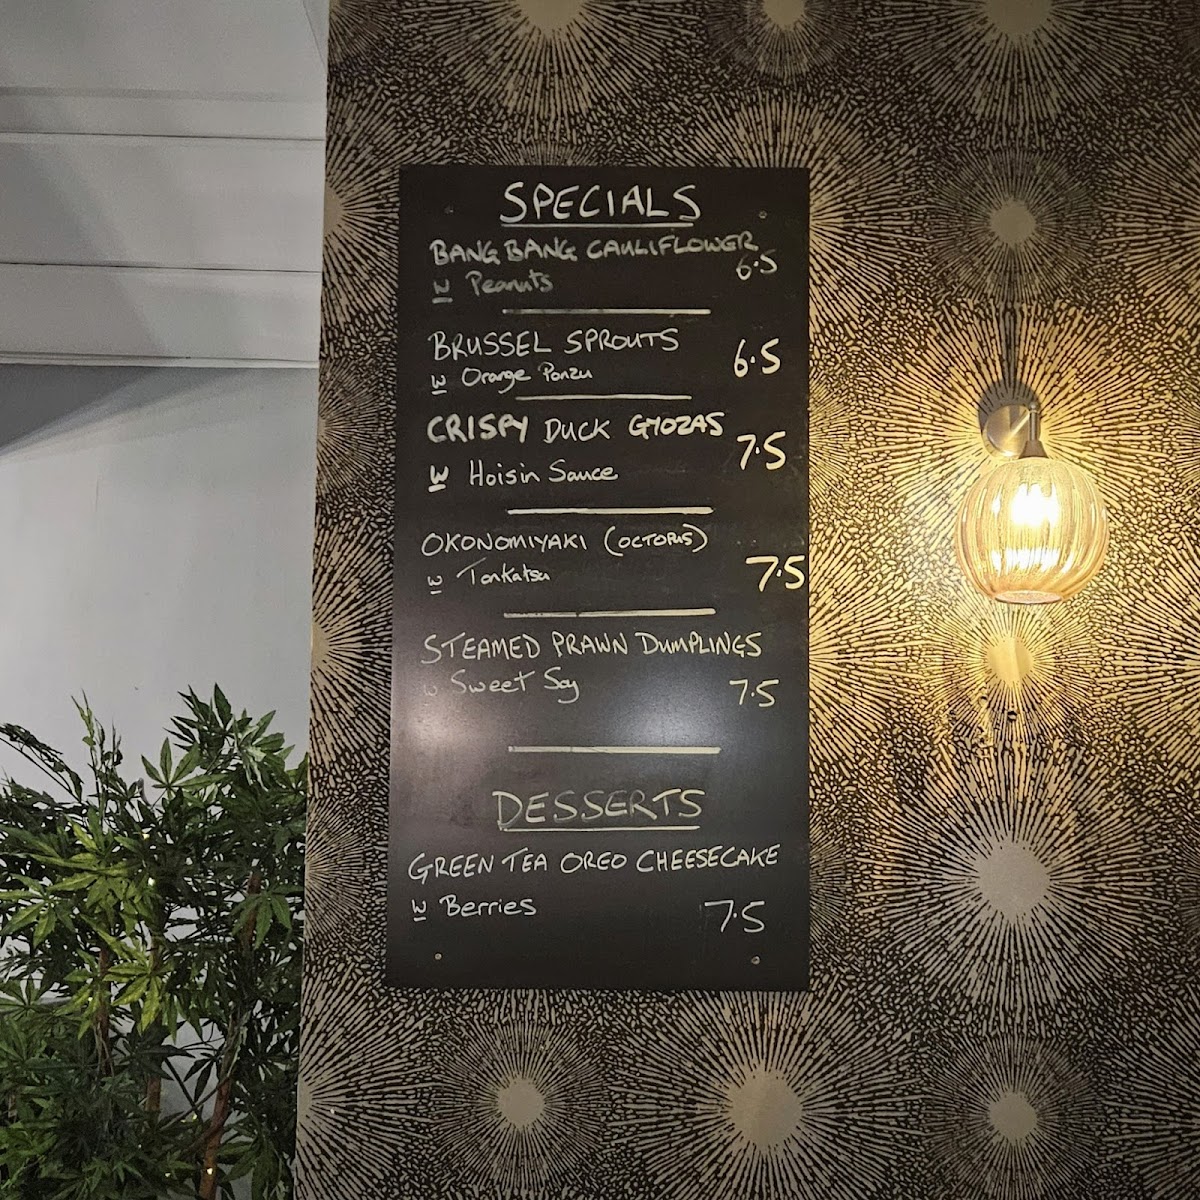 SPECIALS
BANG BANG CAULIFLOWER
6.5
w Peanuts
BRUSSEL SPROUTS
6.5
w Orange Ponzu
CRISPY DUCK GYOZAS
7.5
w Hoisin Sauce
OKONOMIYAKI (OCTOPUS)
7.5
w Tonkatsu
STEAMED PRAWN DUMPLINGS
w Sweet Soy
7.5
DESSERTS
GREEN TEA OREO CHEESECAKE
w Berries
7.5